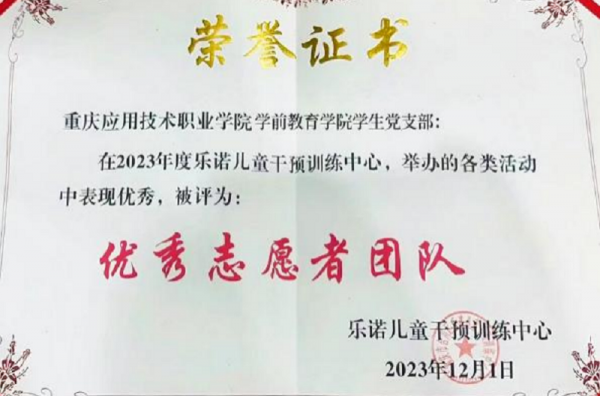 荣誉证书
重庆应用技术职业学院学前教育学院学生党支部：
在2023年度乐诺儿童干预训练中心，举办的各类活动
中表现优秀，被评为：
优秀志愿者团队
乐诺儿童干预训练中心
2023年12月1日